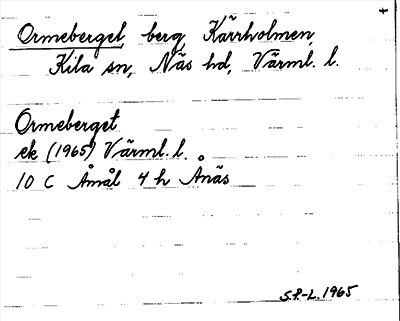 Ormeberget, berg, Kärrholmen,
Kila sn, Näs hd, Värml. l.
Ormeberget
ek (1965) Värml. l.
10 C Åmål 4 h Ånäs
S.P-L. 1965